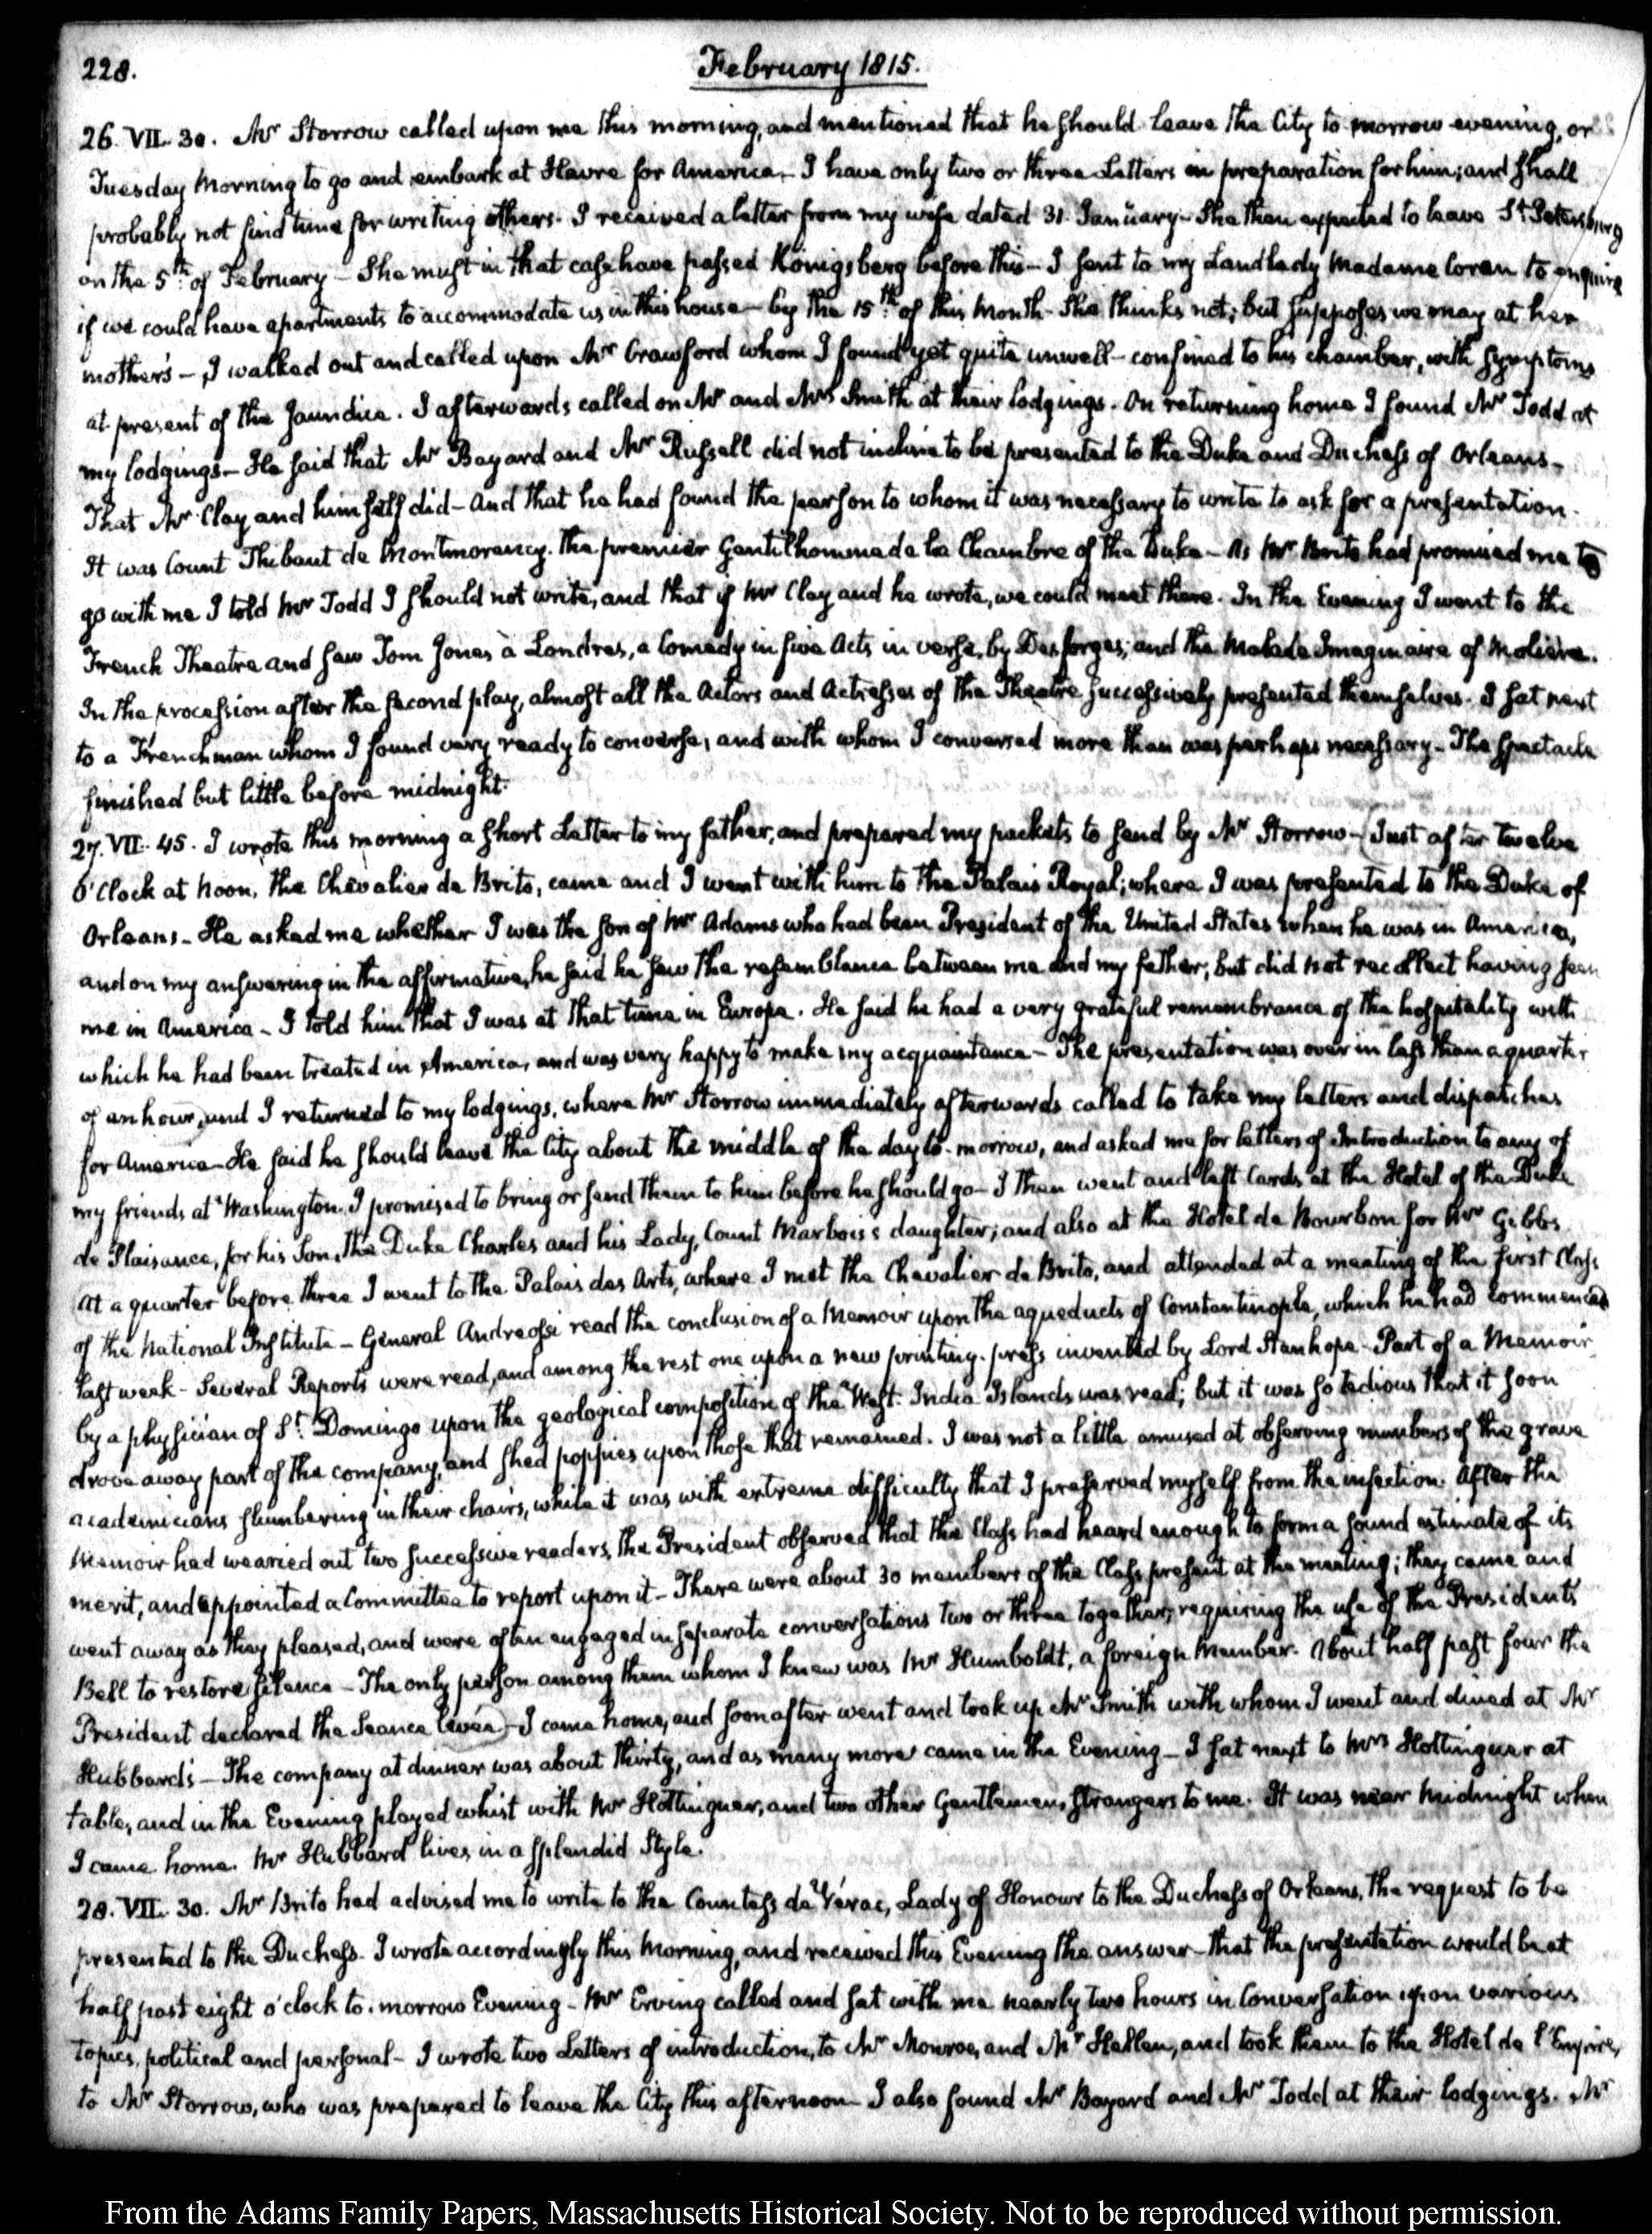 228.
February 1815.
26. VII. 30. Mr Storrow called upon me this morning, and mentioned that he should leave the City to morrow evening, or
Tuesday Morning to go and embark at Havre for America. I have only two or three Letters in preparation for him; and shall
probably not find time for writing others. I received a letter from my wife dated 31. January. She then expected to leave St Petersburg
on the 5th of February — She must in that case have passed Königsberg before this — I sent to my Landlady Madame Coren to enquire
if we could have apartments to accommodate us in this house — by the 15th of this Month. She thinks not; but supposes we may at her
mother's — I walked out and called upon Mr Crawford whom I found yet quite unwell — confined to his chamber, with symptoms
at present of the Jaundice. I afterwards called on Mr and Mrs Smith at their lodgings. On returning home I found Mr Todd at
my lodgings — He said that Mr Bayard and Mr Russell did not incline to be presented to the Duke and Duchess of Orleans —
That Mr Clay and himself did — And that he had found the person to whom it was necessary to write to ask for a presentation.
It was Count Thibaut de Montmorency. The premier Gentilhomme de la Chambre of the Duke — As Mr Brito had promised me to
go with me I told Mr Todd I should not write, and that if Mr Clay and he wrote, we could meet there. In the Evening I went to the
French Theatre and saw Tom Jones à Londres, a Comedy in five Acts in verse, by Desforges; and the Malade Imaginaire of Moliere.
In the procession after the second play, almost all the Actors and Actresses of the Theatre successively presented themselves. I sat next
to a Frenchman whom I found very ready to converse, and with whom I conversed more than was perhaps necessary — The Spectacle
finished but little before midnight.
27. VII. 45. I wrote this morning a short Letter to my father, and prepared my packets to send by Mr Storrow — Just after twelve
O'Clock at Noon, the Chevalier de Brito, came and I went with him to the Palais Royal; where I was presented to the Duke of
Orleans — He asked me whether I was the Son of Mr Adams who had been President of the United States when he was in America,
and on my answering in the affirmative, he said he saw the resemblance between me and my father; but did not recollect having seen
me in America — I told him that I was at that time in Europe. He said he had a very grateful remembrance of the hospitality with
which he had been treated in America, and was very happy to make my acquaintance — The presentation was over in less than a quarter
of an hour, and I returned to my lodgings, where Mr Storrow immediately afterwards called to take my letters and dispatches
for America — He said he should leave the City about the middle of the day to-morrow, and asked me for letters of Introduction to any of
my friends at Washington. I promised to bring or send them to him before he should go — I then went and left Cards at the Hotel of the Duke
de Plaisance, for his Son, the Duke Charles and his Lady, Count Marbois's daughter; and also at the Hotel de Bourbon for Mr Gibbs.
At a quarter before three I went to the Palais des Arts, where I met the Chevalier de Brito, and attended at a meeting of the first Class
of the National Institute — General Andreossi read the conclusion of a Memoir upon the aqueducts of Constantinople, which he had commenced
last week — Several Reports were read, and among the rest one upon a new printing-press invented by Lord Stanhope — Part of a Memoir
by a physician of St. Domingo upon the geological composition of the West-India Islands was read; but it was so tedious that it soon
drove away part of the company, and shed poppies upon those that remained. I was not a little amused at observing numbers of the grave
academicians slumbering in their chairs, while it was with extreme difficulty that I preserved myself from the infection. After the
Memoir had wearied out two successive readers, the President observed that the Class had heard enough to form a sound estimate of its
merit, and appointed a Committee to report upon it — There were about 30 members of the Class present at the meeting; they came and
went away as they pleased, and were often engaged in separate conversations two or three together, requiring the use of the President's
Bell to restore silence — The only person among them whom I knew was Mr Humboldt, a foreign Member. About half past four the
President declared the Seance levée — I came home, and soon after went and took up Mr Smith with whom I went and dined at Mr
Hubbard's — The company at dinner was about thirty, and as many more came in the Evening — I sat next to Mrs Hottinguer at
table, and in the Evening played whist with Mr Hottinguer, and two other Gentlemen, strangers to me. It was near Midnight when
I came home. Mr Hubbard lives in a splendid Style.
28. VII. 30. Mr Brito had advised me to write to the Countess de Vérac, Lady of Honour to the Duchess of Orleans, the request to be
presented to the Duchess. I wrote accordingly this Morning, and received this Evening the answer — that the presentation would be at
half past eight o'clock to-morrow Evening — Mr Erving called and sat with me nearly two hours in Conversation upon various
topics, political and personal — I wrote two Letters of introduction, to Mr Monroe, and Mr Hellen, and took them to the Hotel de l'Empire,
to Mr Storrow, who was prepared to leave the City this afternoon — I also found Mr Bayard and Mr Todd at their lodgings. Mr
From the Adams Family Papers, Massachusetts Historical Society. Not to be reproduced without permission.